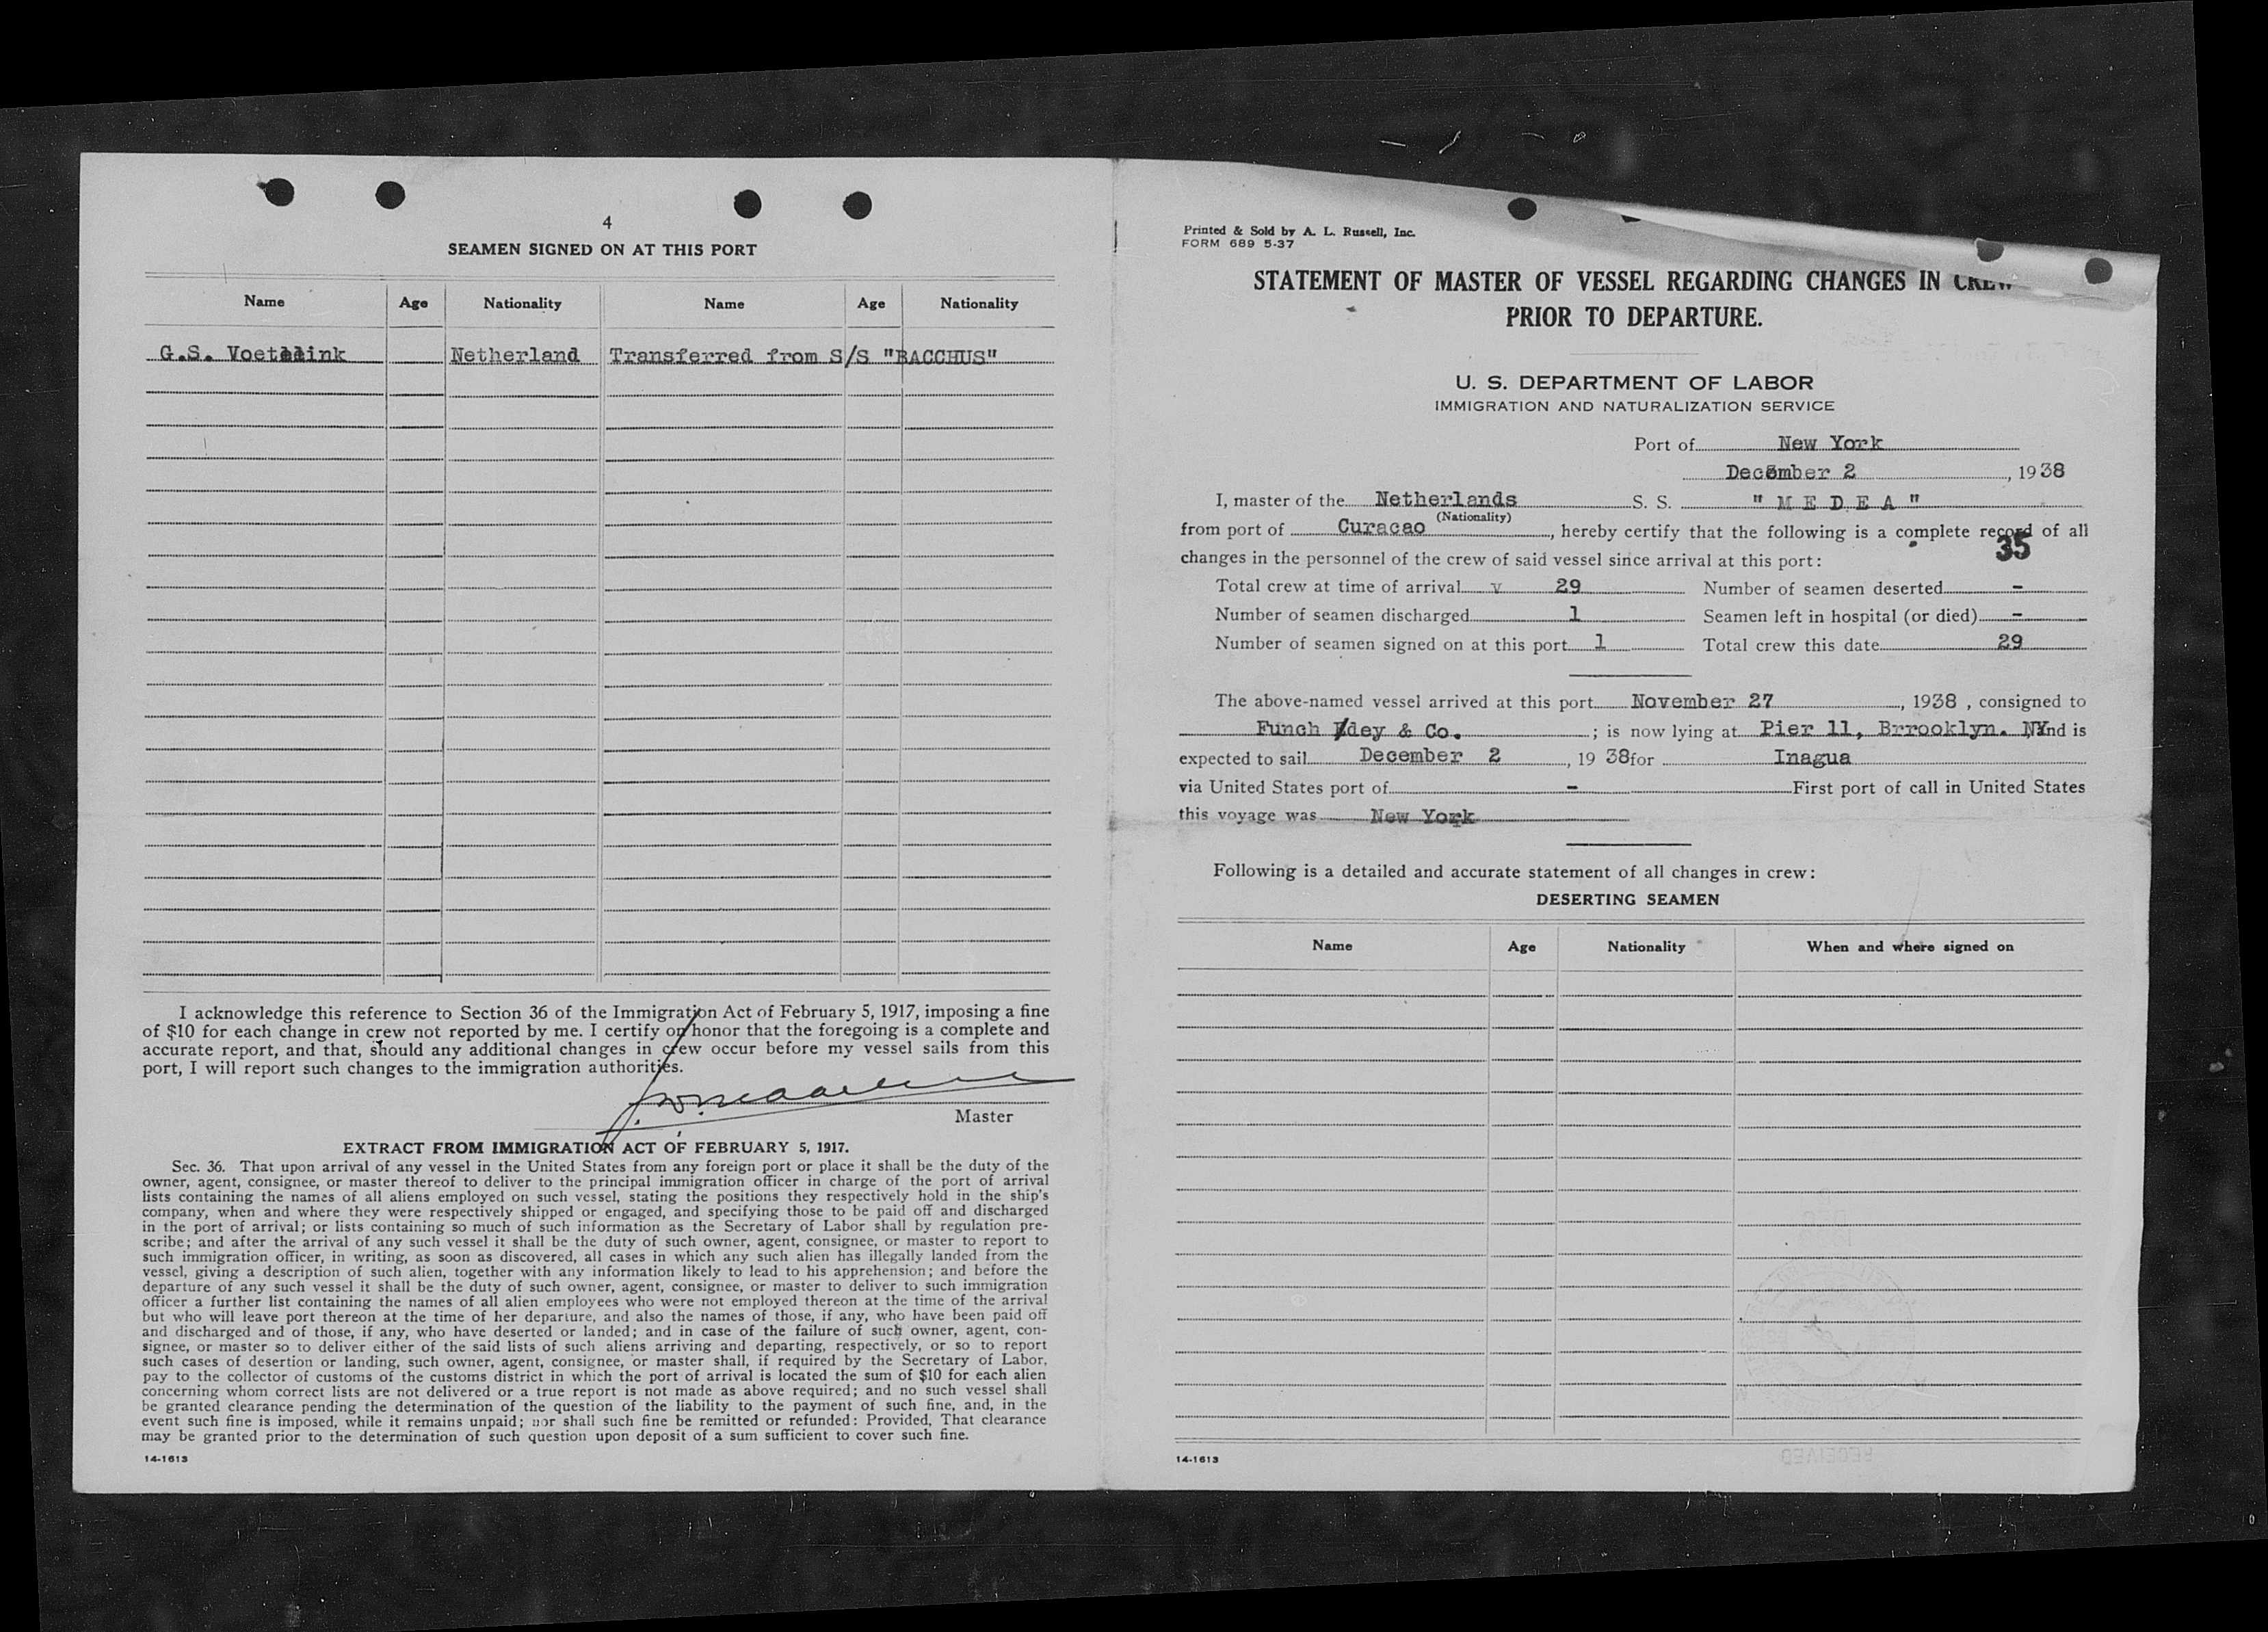 4
SEAMEN SIGNED ON AT THIS PORT
Name Age Nationality Name Age Nationality
G.S. Netherland Transferred from S/S "BACCHUS"
I acknowledge this reference to Section 36 of the Immigration Act of February 5, 1917, imposing a fine
of $10 for each change in crew not reported by me. I certify on honor that the foregoing is a complete and
accurate report, and that, should any additional changes in crew occur before my vessel sails from this
port, I will report such changes to the immigration authorities.
Master
EXTRACT FROM IMMIGRATION ACT OF FEBRUARY 5, 1917.
Sec. 36. That upon arrival of any vessel in the United States from any foreign port or place it shall be the duty of the
owner, agent, consignee, or master thereof to deliver to the principal immigration officer in charge of the port of arrival
lists containing the names of all aliens employed on such vessel, stating the positions they respectively hold in the ship's
company, when and where they were respectively shipped or engaged, and specifying those to be paid off and discharged
in the port of arrival; or lists containing so much of such information as the Secretary of Labor shall by regulation pre-
scribe; and after the arrival of any such vessel it shall be the duty of such owner, agent, consignee, or master to report to
such immigration officer, in writing, as soon as discovered, all cases in which any such alien has illegally landed from the
vessel, giving a description of such alien, together with any information likely to lead to his apprehension; and before the
departure of any such vessel it shall be the duty of such owner, agent, consignee, or master to deliver to such immigration
officer a further list containing the names of all alien employees who were not employed thereon at the time of the arrival
but who will leave port thereon at the time of her departure, and also the names of those, if any, who have been paid off
and discharged and of those, if any, who have deserted or landed; and in case of the failure of such owner, agent, con-
signee, or master so to deliver either of the said lists of such aliens arriving and departing, respectively, or so to report
such cases of desertion or landing, such owner, agent, consignee, or master shall, if required by the Secretary of Labor,
pay to the collector of customs of the customs district in which the port of arrival is located the sum of $10 for each alien
concerning whom correct lists are not delivered or a true report is not made as above required; and no such vessel shall
be granted clearance pending the determination of the question of the liability to the payment of such fine, and, in the
event such fine is imposed, while it remains unpaid; nor shall such fine be remitted or refunded: Provided, That clearance
may be granted prior to the determination of such question upon deposit of a sum sufficient to cover such fine.
14-1613
Printed & Sold by A. L. Russell, Inc.
FORM 689 5-37
STATEMENT OF MASTER OF VESSEL REGARDING CHANGES IN CREW
PRIOR TO DEPARTURE.
U. S. DEPARTMENT OF LABOR
IMMIGRATION AND NATURALIZATION SERVICE
Port of New York
December 2, 1938
I, master of the Netherlands S. S. "MEDEA"
(Nationality)
from port of Curacao, hereby certify that the following is a complete record of all
35
changes in the personnel of the crew of said vessel since arrival at this port:
Total crew at time of arrival v 29 Number of seamen deserted -
Number of seamen discharged 1 Seamen left in hospital (or died) -
Number of seamen signed on at this port 1 Total crew this date 29
The above-named vessel arrived at this port November 27, 1938, consigned to
Funch Edey & Co.; is now lying at Pier 11, Brrooklyn. NY and is
expected to sail December 2, 1938 for Inagua
via United States port of - First port of call in United States
this voyage was New York
Following is a detailed and accurate statement of all changes in crew:
DESERTING SEAMEN
Name Age Nationality When and where signed on
14-1613